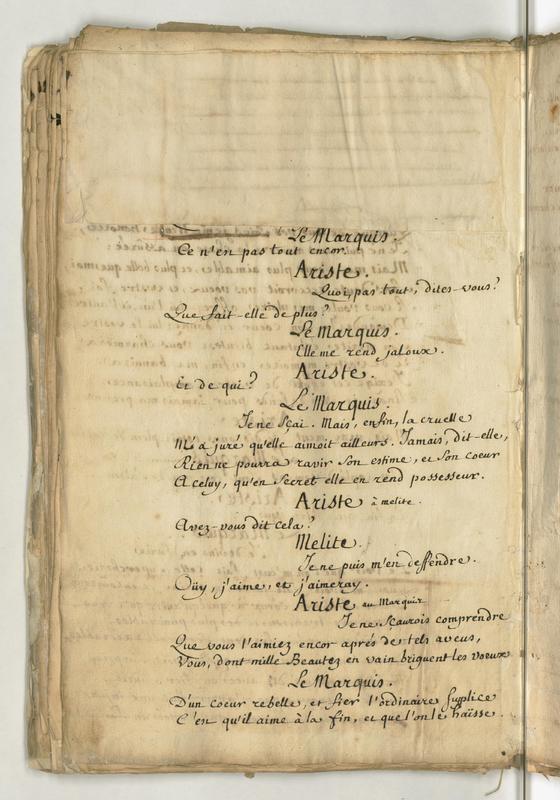 Le Marquis.
Ce n'en pas tout encor.
Ariste.
Quoi, pas tout, dites-vous?
Que fait-elle de plus?
Le Marquis.
Elle me rend jaloux.
Ariste.
Et de qui?
Le Marquis
Je ne sçai. Mais, enfin, la cruelle
M'a juré qu'elle aimoit ailleurs. Jamais, dit-elle,
Rien ne pourra ravir son estime, et son coeur
A celuy, qu'en secret elle en rend possesseur.
Ariste à melite.
Avez-vous dit cela?
Melite.
Je ne puis m'en deffendre.
Oüy, j'aime, et j'aimeray.
Ariste au Marquis
Je ne sçaurois comprendre
Que vous l'aimiez encor aprés de tels aveus,
Vous, dont mille Beautez en vain briguent les voeux
Le Marquis.
D'un coeur rebelle, et fier l'ordinaire supplice
C'en qu'il aime à la fin, et que l'on le haïsse.